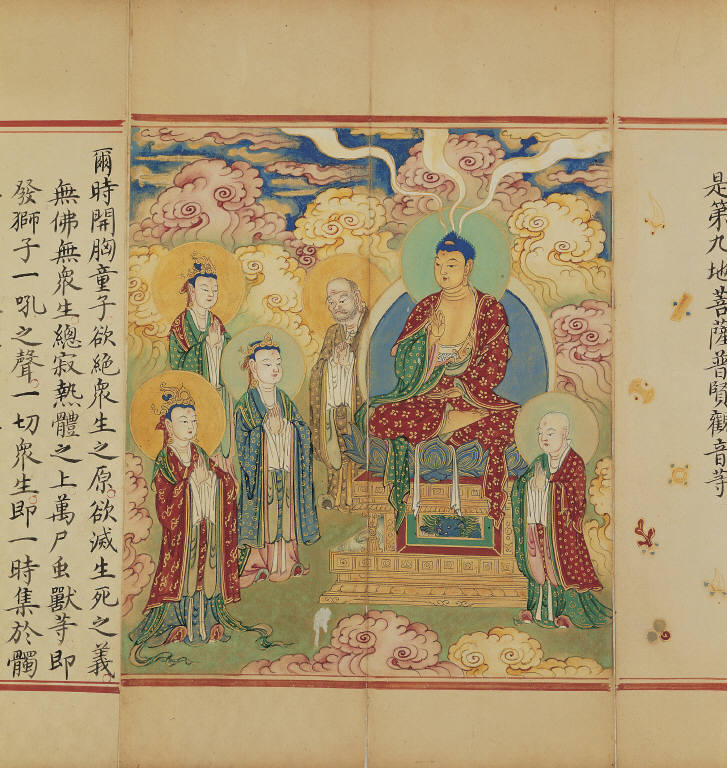 是第九地菩薩普賢觀音等
爾時開胸童子欲絕衆生之原欲滅生死之義
無佛無衆生總寂熱體之上萬尸虫獸等即
發獅子一吼之聲一切衆生即一時集於髑